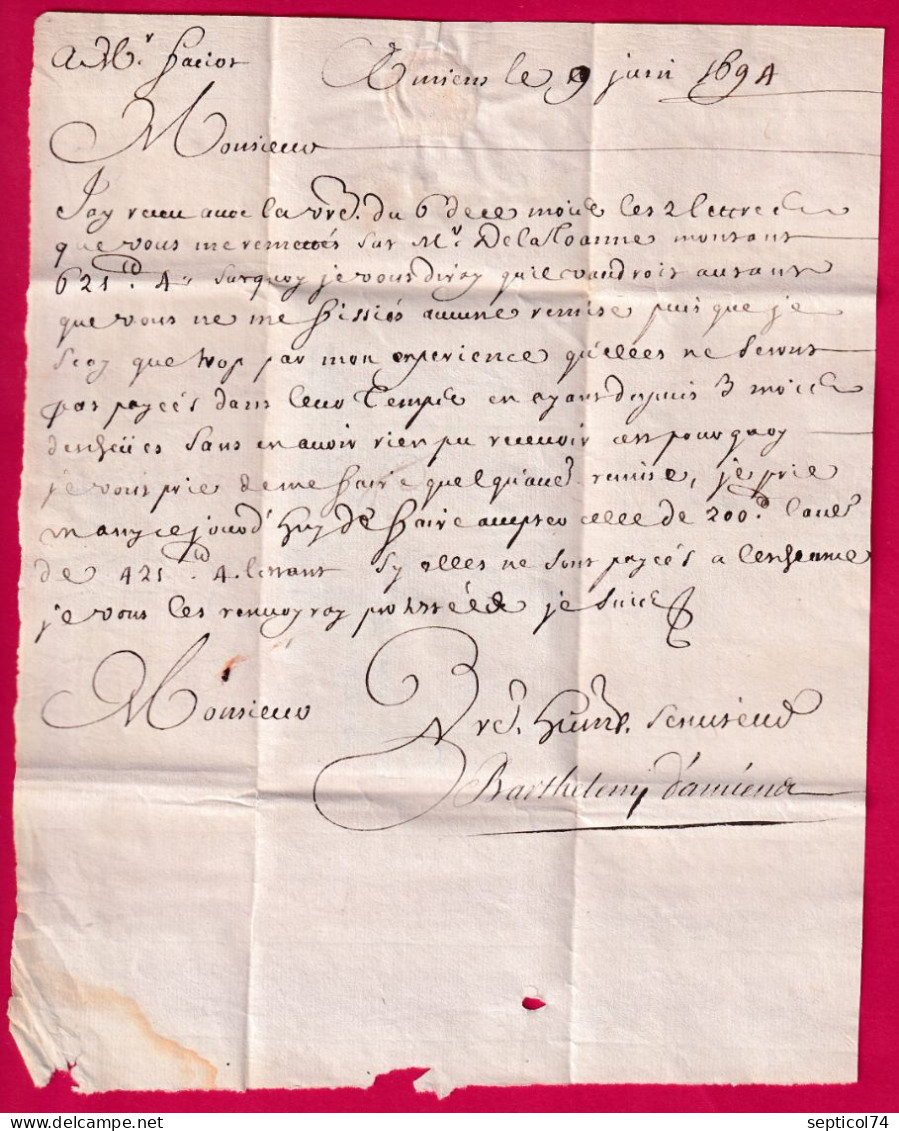 A Mr. Amiens le 9 juin 1694
Monsieur
J'ay receu avec la vre. du 6 de ce mois les 2 lettres
que vous me remettés sur Mr. De la Roanne montant
621 lt. 4 s surquoy je vous diray qu'il vaudroit autant
que vous ne me fissiés aucune remise puis que je
scay que trop par mon experience qu'elles ne seront
pas payées dans leur temps en ayant depuis 3 mois
d'escheües sans en avoir rien pu recevoir c'est pourquoy
je vous prie de me faire quelqu'autre remise, je prie
aujourd'huy de faire accepter celle de 200 lt. l'autre
de 421 lt. 4. estant sy elles ne sont payées a l'escheance
je vous les renvoyray protestées je suis
Monsieur
Vre. humb. serviteur
Barthelemy d'amiens
septicol74
delcampe.net